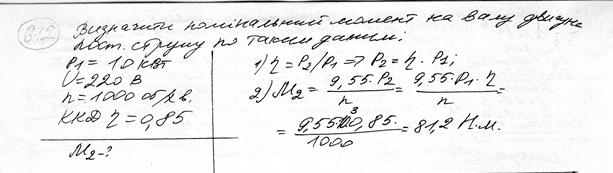 6.12 Визначити номінальний момент на валу двигуна
пост. струму по таким даним;
P1 = 10 кВт
U = 220 В
n = 1000 об/хв.
ККД η = 0,85
M2 - ?
1) η = P2/P1 => P2 = η · P1;
2) M2 = 9,55·P2 / n = 9,55·P1·η / n =
= 9,55·10·10³·0,85 / 1000 = 81,2 Н.м.